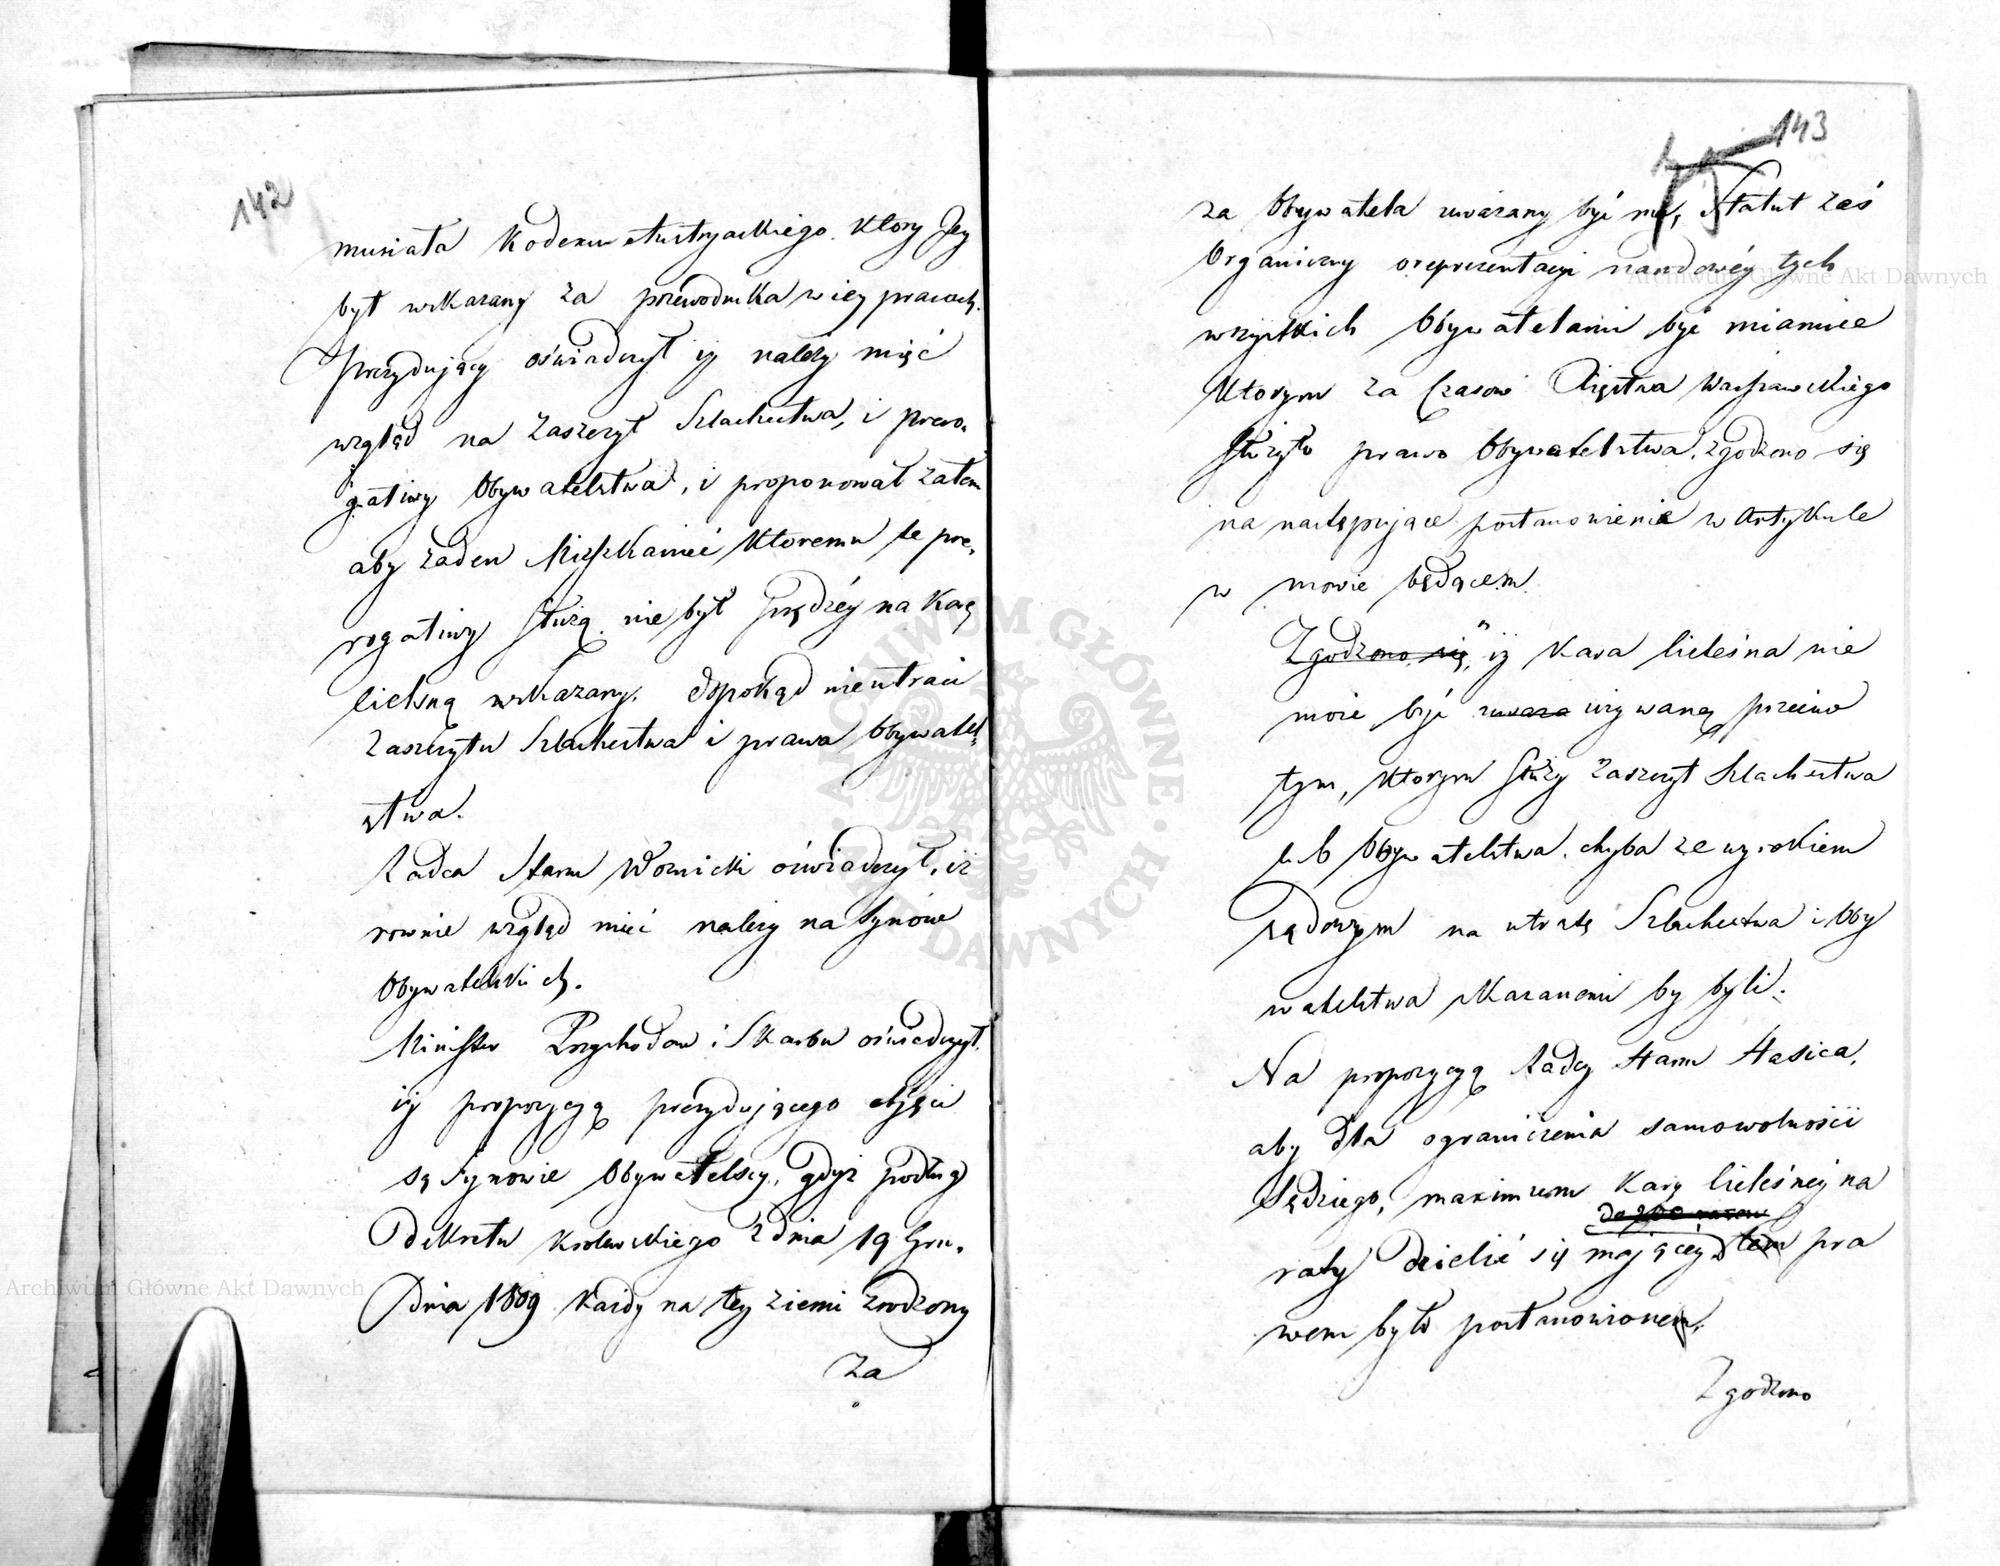 142
musiała Kodexu Austryackiego. Ktory Jey
był wskazany za przewodnika w iey pracach.
Prezydujący oświadczył iż należy mięć
wzgląd na zaszczyt Szlachectwa, i prero-
gatiwy Obywatelstwa, i proponował zatem
aby żaden Mieszkaniec Ktoremu te pre-
rogatiwy służą nie był prędzéy na karę
cielesną wskazany. dopokąd nie utraci
Zaszczytu Szlachectwa i prawa Obywatel-
stwa.
Radca Stanu Woznicki oświadczył, iż
rownie wzgląd mieć należy na Synów
Obywatelskich.
Minister Przychodow i Skarbu oświadczył.
iż propozycyą prezydującego objęci
są Synowie Obywatelscy, gdyż podług
Dekretu Krolewskiego z dnia 19 Gru-
dnia 1809 Każdy na tey ziemi zrodzony
za
143
za Obywatela uważany być ma, Statut zaś
Organiczny o reprezentacyi narodowéy tych
wszystkich Obywatelami być mianuie
Ktorym za Czasow Xięstwa Warszawskiego
służyło prawo Obywatelstwa. zgodzono się
na następujące postanowienie w Artykule
w mowie będącem.
Zgodzono się, "iż Kara cieleśna nie
może być uważa używaną przeciw
tym, Ktorym służy Zaszczyt Szlachectwa
lub Obywatelstwa. chyba że wyrokiem
Sądowym na utratę Szlachectwa i Oby
watelstwa skazanemi by byli.
Na propozycyą Radcy Stanu Stasica.
aby dla ograniczenia samowolności
Sędziego, maximum Kary cieleśnéy na
do 200 razow
raty dzielić się mającéy tem pra
wem było postanowionem.
Zgodzono
Archiwum Główne Akt Dawnych
Archiwum Główne Akt Dawnych
ARCHIWUM GŁÓWNE · AKT DAWNYCH ·